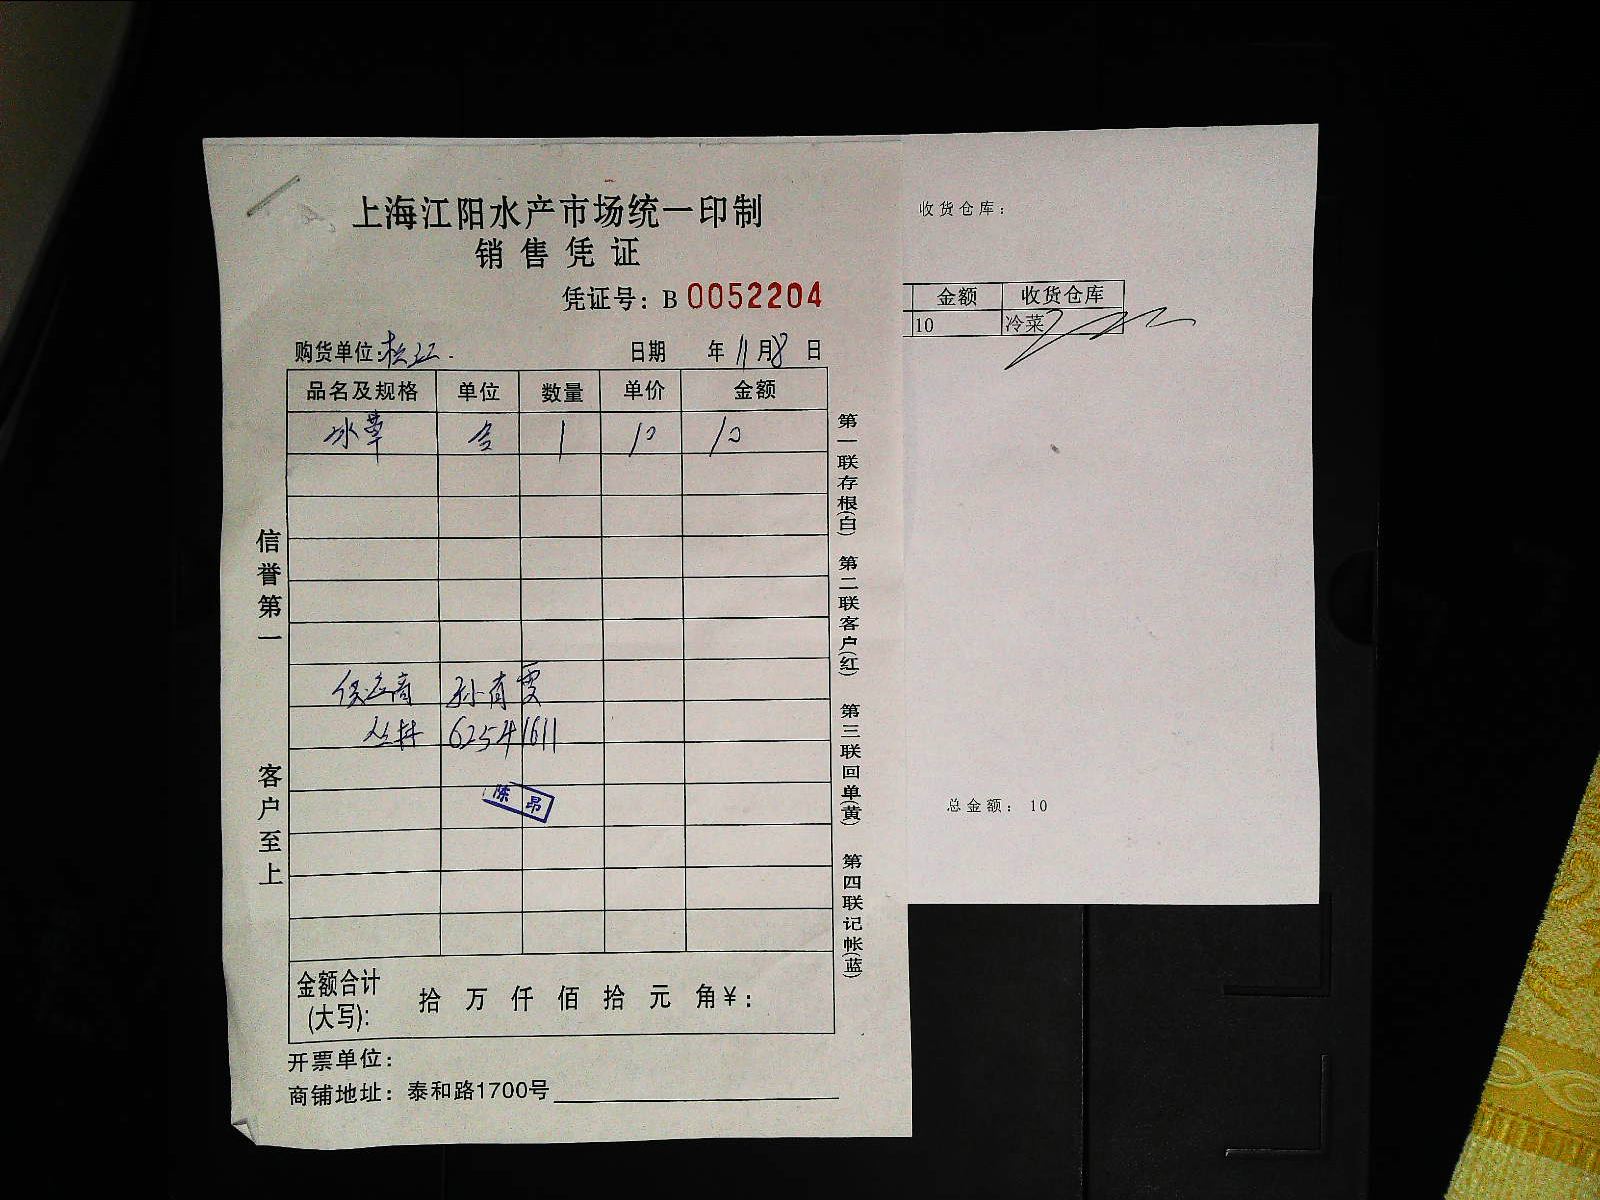 上海江阳水产市场统一印制
销售凭证
凭证号：B 0052204
购货单位:松江.
日期 年11月8日
品名及规格 单位 数量 单价 金额
冰草 1 10 10
供应商 孙肖雯
62541611
陈昂
金额合计
(大写):
拾 万 仟 佰 拾 元 角￥:
开票单位:
商铺地址: 泰和路1700号
信誉第一
客户至上
第一联存根(白) 第二联客户(红) 第三联回单(黄) 第四联记帐(蓝)
收货仓库:
金额 收货仓库
10 冷菜
总金额: 10